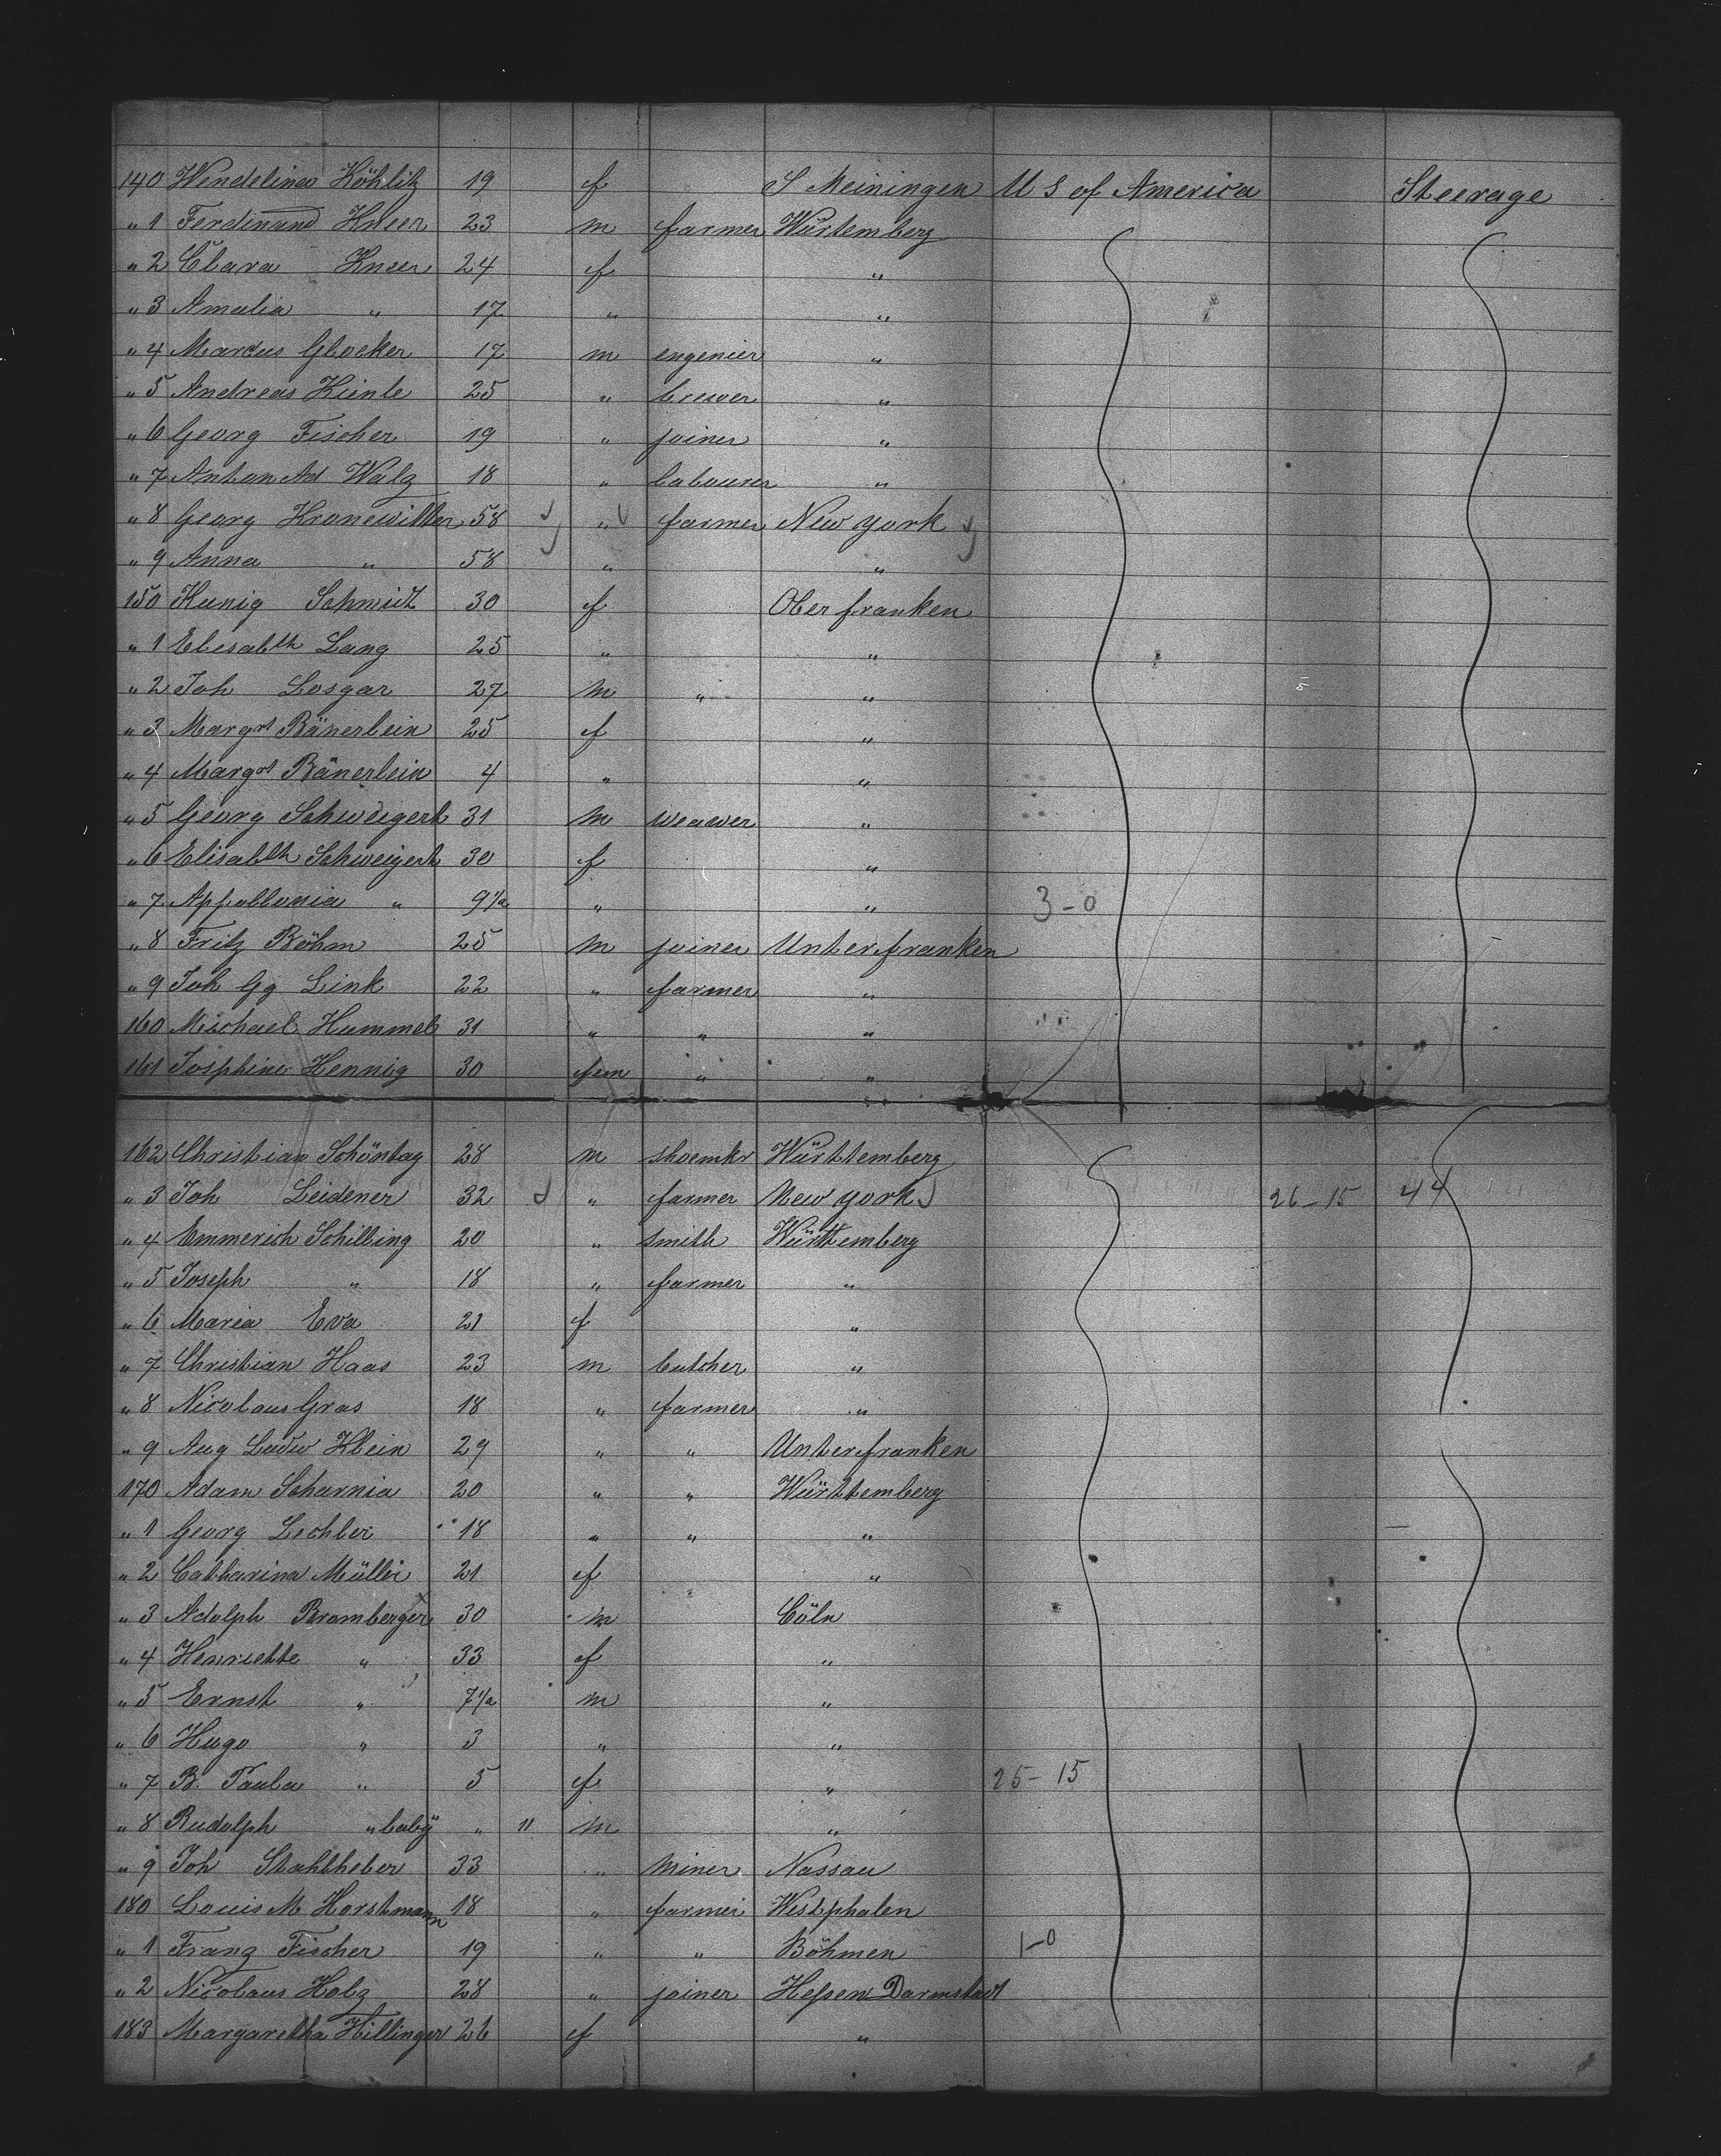 140 Wendelina Köhlitz 19 f S Meiningen U S of America Steerage
" 1 Ferdinand Kneer 23 m farmer Würtemberg
" 2 Clara Kneer 24 f "
" 3 Amalia " 17 " "
" 4 Marcus Glocker 17 m engenier "
" 5 Andreas Kienle 25 " brewer "
" 6 Georg Fischer 19 " joiner "
" 7 Anton Ad Walz 18 " labourer "
" 8 Georg Kronewitter 58 " farmer New york
" 9 Anna " 58 " "
150 Kunig Schmidt 30 f Oberfranken
" 1 Elesabth Lang 25 " "
" 2 Joh Losgar 27 m " "
" 3 Margrt Bänerlein 25 f "
" 4 Margrt Bänerlein 4 " "
" 5 Georg Schweigert 31 m weawer "
" 6 Elisabth Schweigert 30 f "
" 7 Appollonia " 9 1/2 " " 3-0
" 8 Fritz Böhm 25 m joiner Unterfranken
" 9 Joh Gg Link 22 " farmer "
160 Mischael Hummel 31 " " "
161 Josphine Hennig 30 fem " "
162 Christian Schöntag 28 m shoemkr Württemberg
" 3 Joh Leidener 32 " farmer New york 26-15 44
" 4 Emmerich Schilling 20 " smith Württemberg
" 5 Joseph " 18 " farmer "
" 6 Maria Eva 21 f "
" 7 Christian Haas 23 m butcher "
" 8 Nicolaus Gras 18 " farmer "
" 9 Aug Ludw Klein 29 " " Unterfranken
170 Adam Scharnia 20 " " Württemberg
" 1 Georg Lechler 18 " " "
" 2 Catharina Müller 21 f "
" 3 Adolph Bromberger 30 m Cöln
" 4 Henriette " 33 f "
" 5 Ernst " 7 1/2 m "
" 6 Hugo " 3 " "
" 7 B. Paula " 5 f " 25-15
" 8 Rudolph " baby " 11 m "
" 9 Joh Stahlheber 33 " miner Nassau
180 Louis M Horstmann 18 " farmer Westphalen
" 1 Franz Fischer 19 " " Böhmen 1-0
" 2 Nicolaus Holz 28 " joiner Hessen Darmstadt
183 Margaretha Hillinger 26 f "